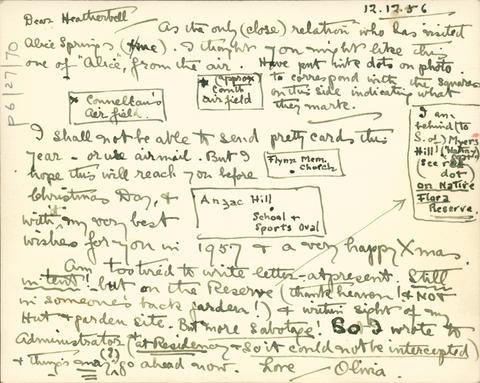 12.12.56
Dear Heatherbell
As the only (close) relation who has visited
Alice Springs (true). I thought you might like this
one of "Alice", from the air. Have put ink dots on photo
to correspond with the squares
on this side indicating what
they mark.
Approx
Comth
airfield
Connellan's
Air field.
I am
behind (to
S. of) Myers
Hill!
(see red
dot)
on Native
Flora
Reserve.
I shall not be able to send pretty cards this
year - or use airmail. But I
hope this will reach you before
Christmas Day, &
with my very best
wishes for you in 1957 & a very happy Xmas.
Flynn Mem.
Church
Anzac Hill
School &
Sports Oval
Am too tired to write letter at present. Still
in tent! - but on the Reserve (thank heaven! & NOT
in someone's back garden!) & within sight of my
Hut & garden site. But more sabotage! So I wrote to
Administrator (at Residency & so it could not be intercepted)
& things may (?) go ahead now. Love Olivia.
P6/27/70